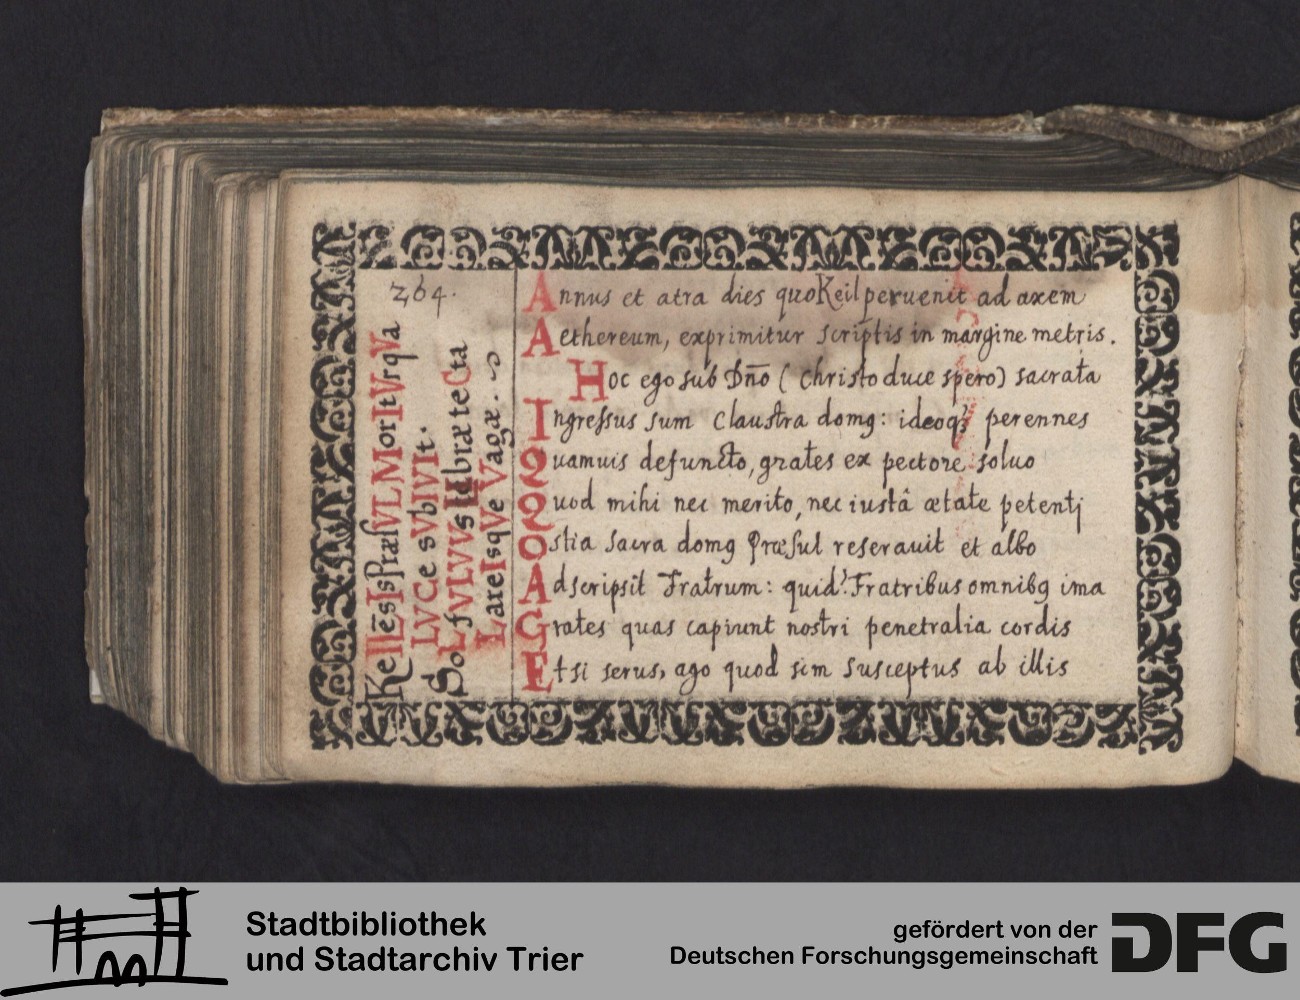 264.
KellēsIsPræfVLMorItVrqVa
LVCe sVbIVIt.
SoLfVLVVs IdbræteCta
LareIsqVe Vagæ.
Annus et atra dies quo Keil peruenit ad axem
Aethereum, exprimitur scriptis in margine metris.
Hoc ego sub Dño ( Christo duce spero) sacrata
Ingressus sum Claustra domꝯ: ideoqȝ perennes
Quamuis defuncto, grates ex pectore soluo
Quod mihi nec merito, nec iustâ ætate petentj
Ostia sacra domꝯ Præsul reserauit et albo
Adscripsit Fratrum: quid? Fratribus omnibꝯ ima
Grates quas capiunt nostri penetralia cordis
Etsi serus, ago quod sim susceptus ab illis
Stadtbibliothek
und Stadtarchiv Trier
gefördert von der
Deutschen Forschungsgemeinschaft
DFG